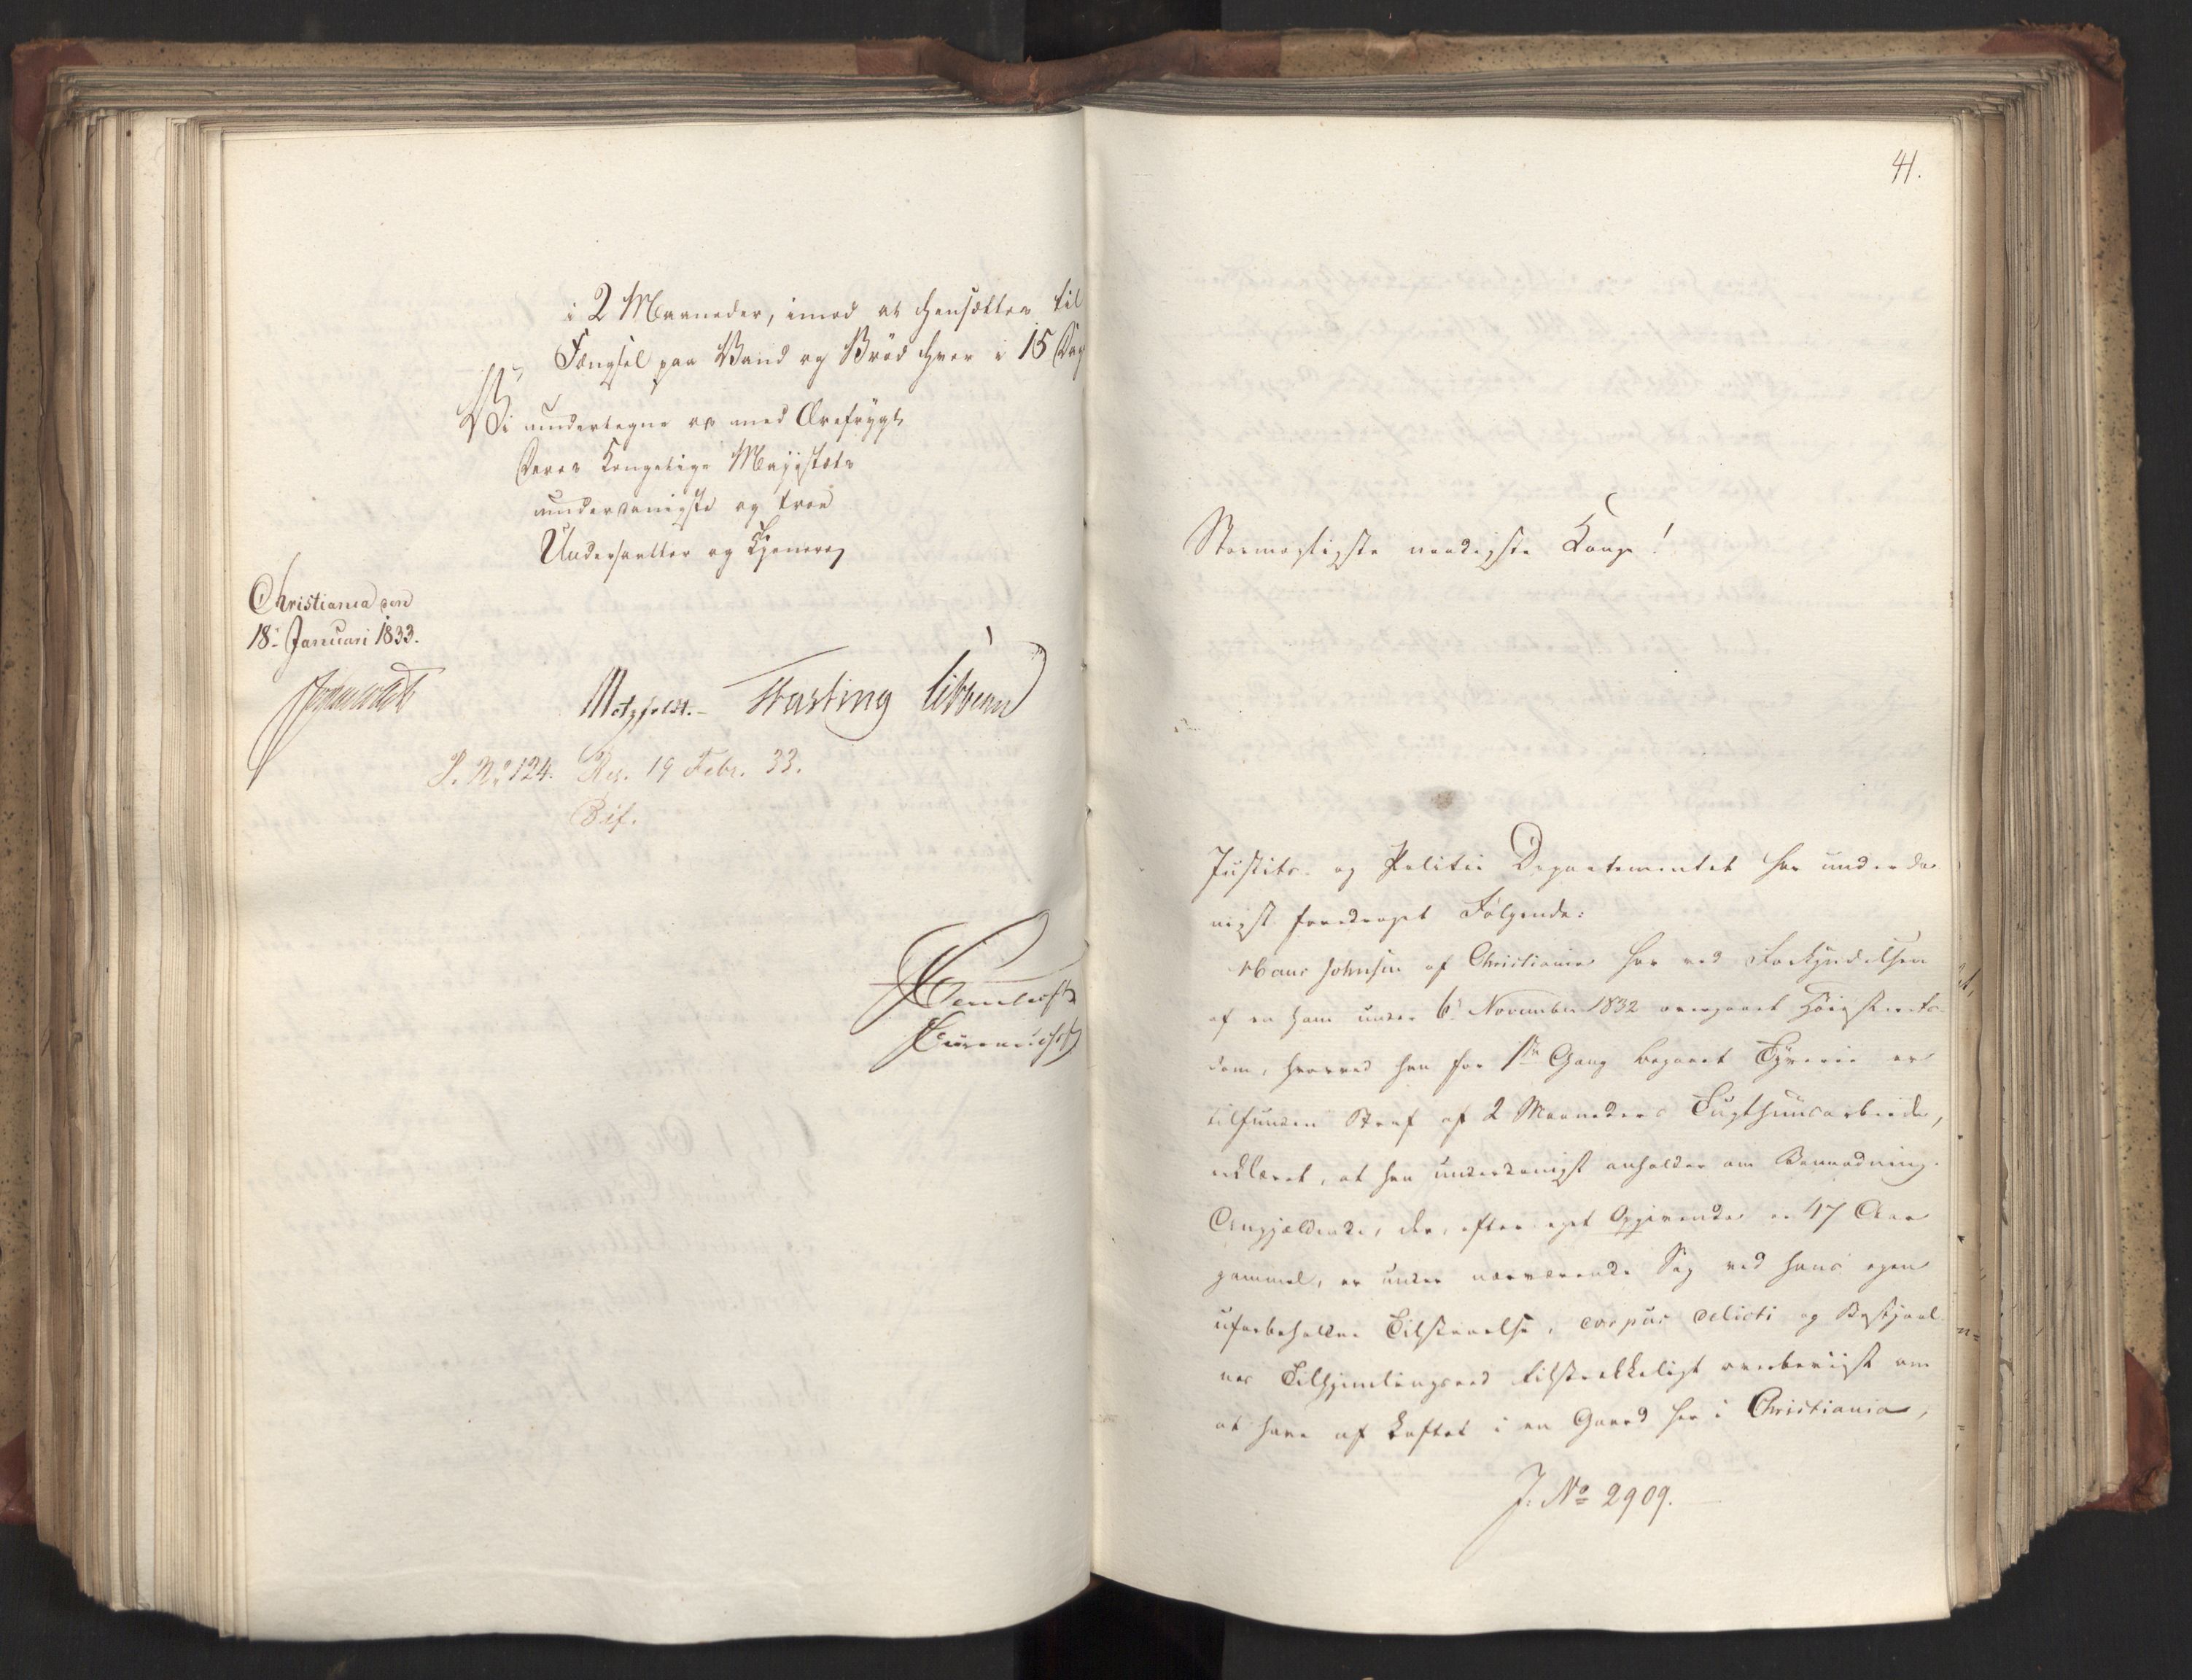 i 2 Maaneder, imod at hensættes til
Fængsel paa Vand og Brød hver i 15 Dag
Vi undertegne os med Ærefrygt
Deres Kongelige Majestæts
underdanigste og troe
Undersaatter og Tjenere
Christiania den
18 Januari 1833.
Motzfeldt. Hasting Sibbern
J. No 124. Res. 19 Febr. 33.
Bif.
41.
Stormægtigste naadigste Konge!
Justits- og Politie Departementet har underda
nigst foredraget Følgende:
Hans Johnsen af Christiania har ved Forkyndelsen
af en ham under 6 November 1832 overgaaet Høiesterets-
dom, hvorved han for 1ste Gang begaaet Tyverie er
tilfunden Straf af 2 Maaneders Tugthuusarbeide,
erklæret, at han underdanigst anholder om Benaadning.
Angjældende, der, efter eget Opgivende er 47 Aar
gammel, er under nærværende Sag ved hans egen
uforbeholdne Tilstaaelse, corpus delicti og Bestjaal
nes Tilhjemlingseed tilstrækkeligt overbeviist om
at have af Loftet i en Gaard her i Christiania,
J. No 2909.